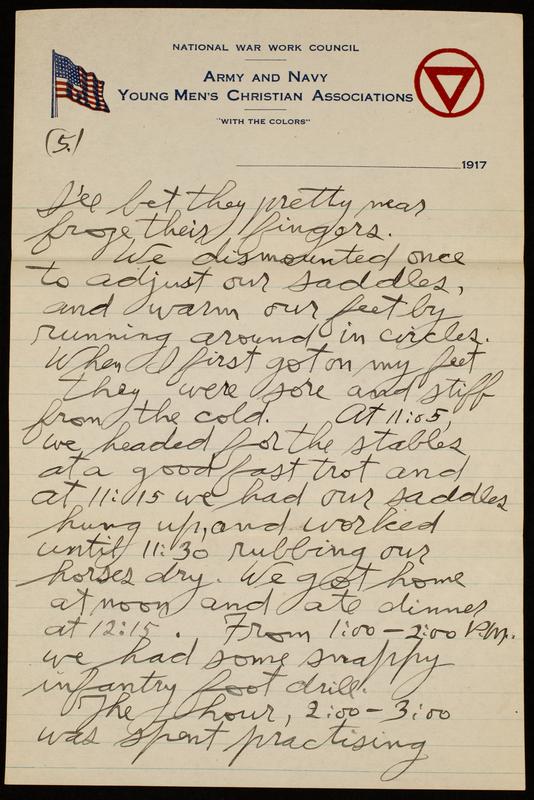 NATIONAL WAR WORK COUNCIL
ARMY AND NAVY
YOUNG MEN'S CHRISTIAN ASSOCIATIONS
"WITH THE COLORS"
(5.)
1917
I'll bet they pretty near
froze their fingers.
We dismounted once
to adjust our saddles,
and warm our feet by
running around in circles.
When I first got on my feet
they were sore and stiff
from the cold. At 11:05,
we headed for the stables
at a good fast trot and
at 11:15 we had our saddles
hung up, and worked
until 11:30 rubbing our
horses dry. We got home
at noon and ate dinner
at 12:15. From 1:00 - 2:00 P.M.
we had some snappy
infantry foot drill.
The hour, 2:00 - 3:00
was spent practising